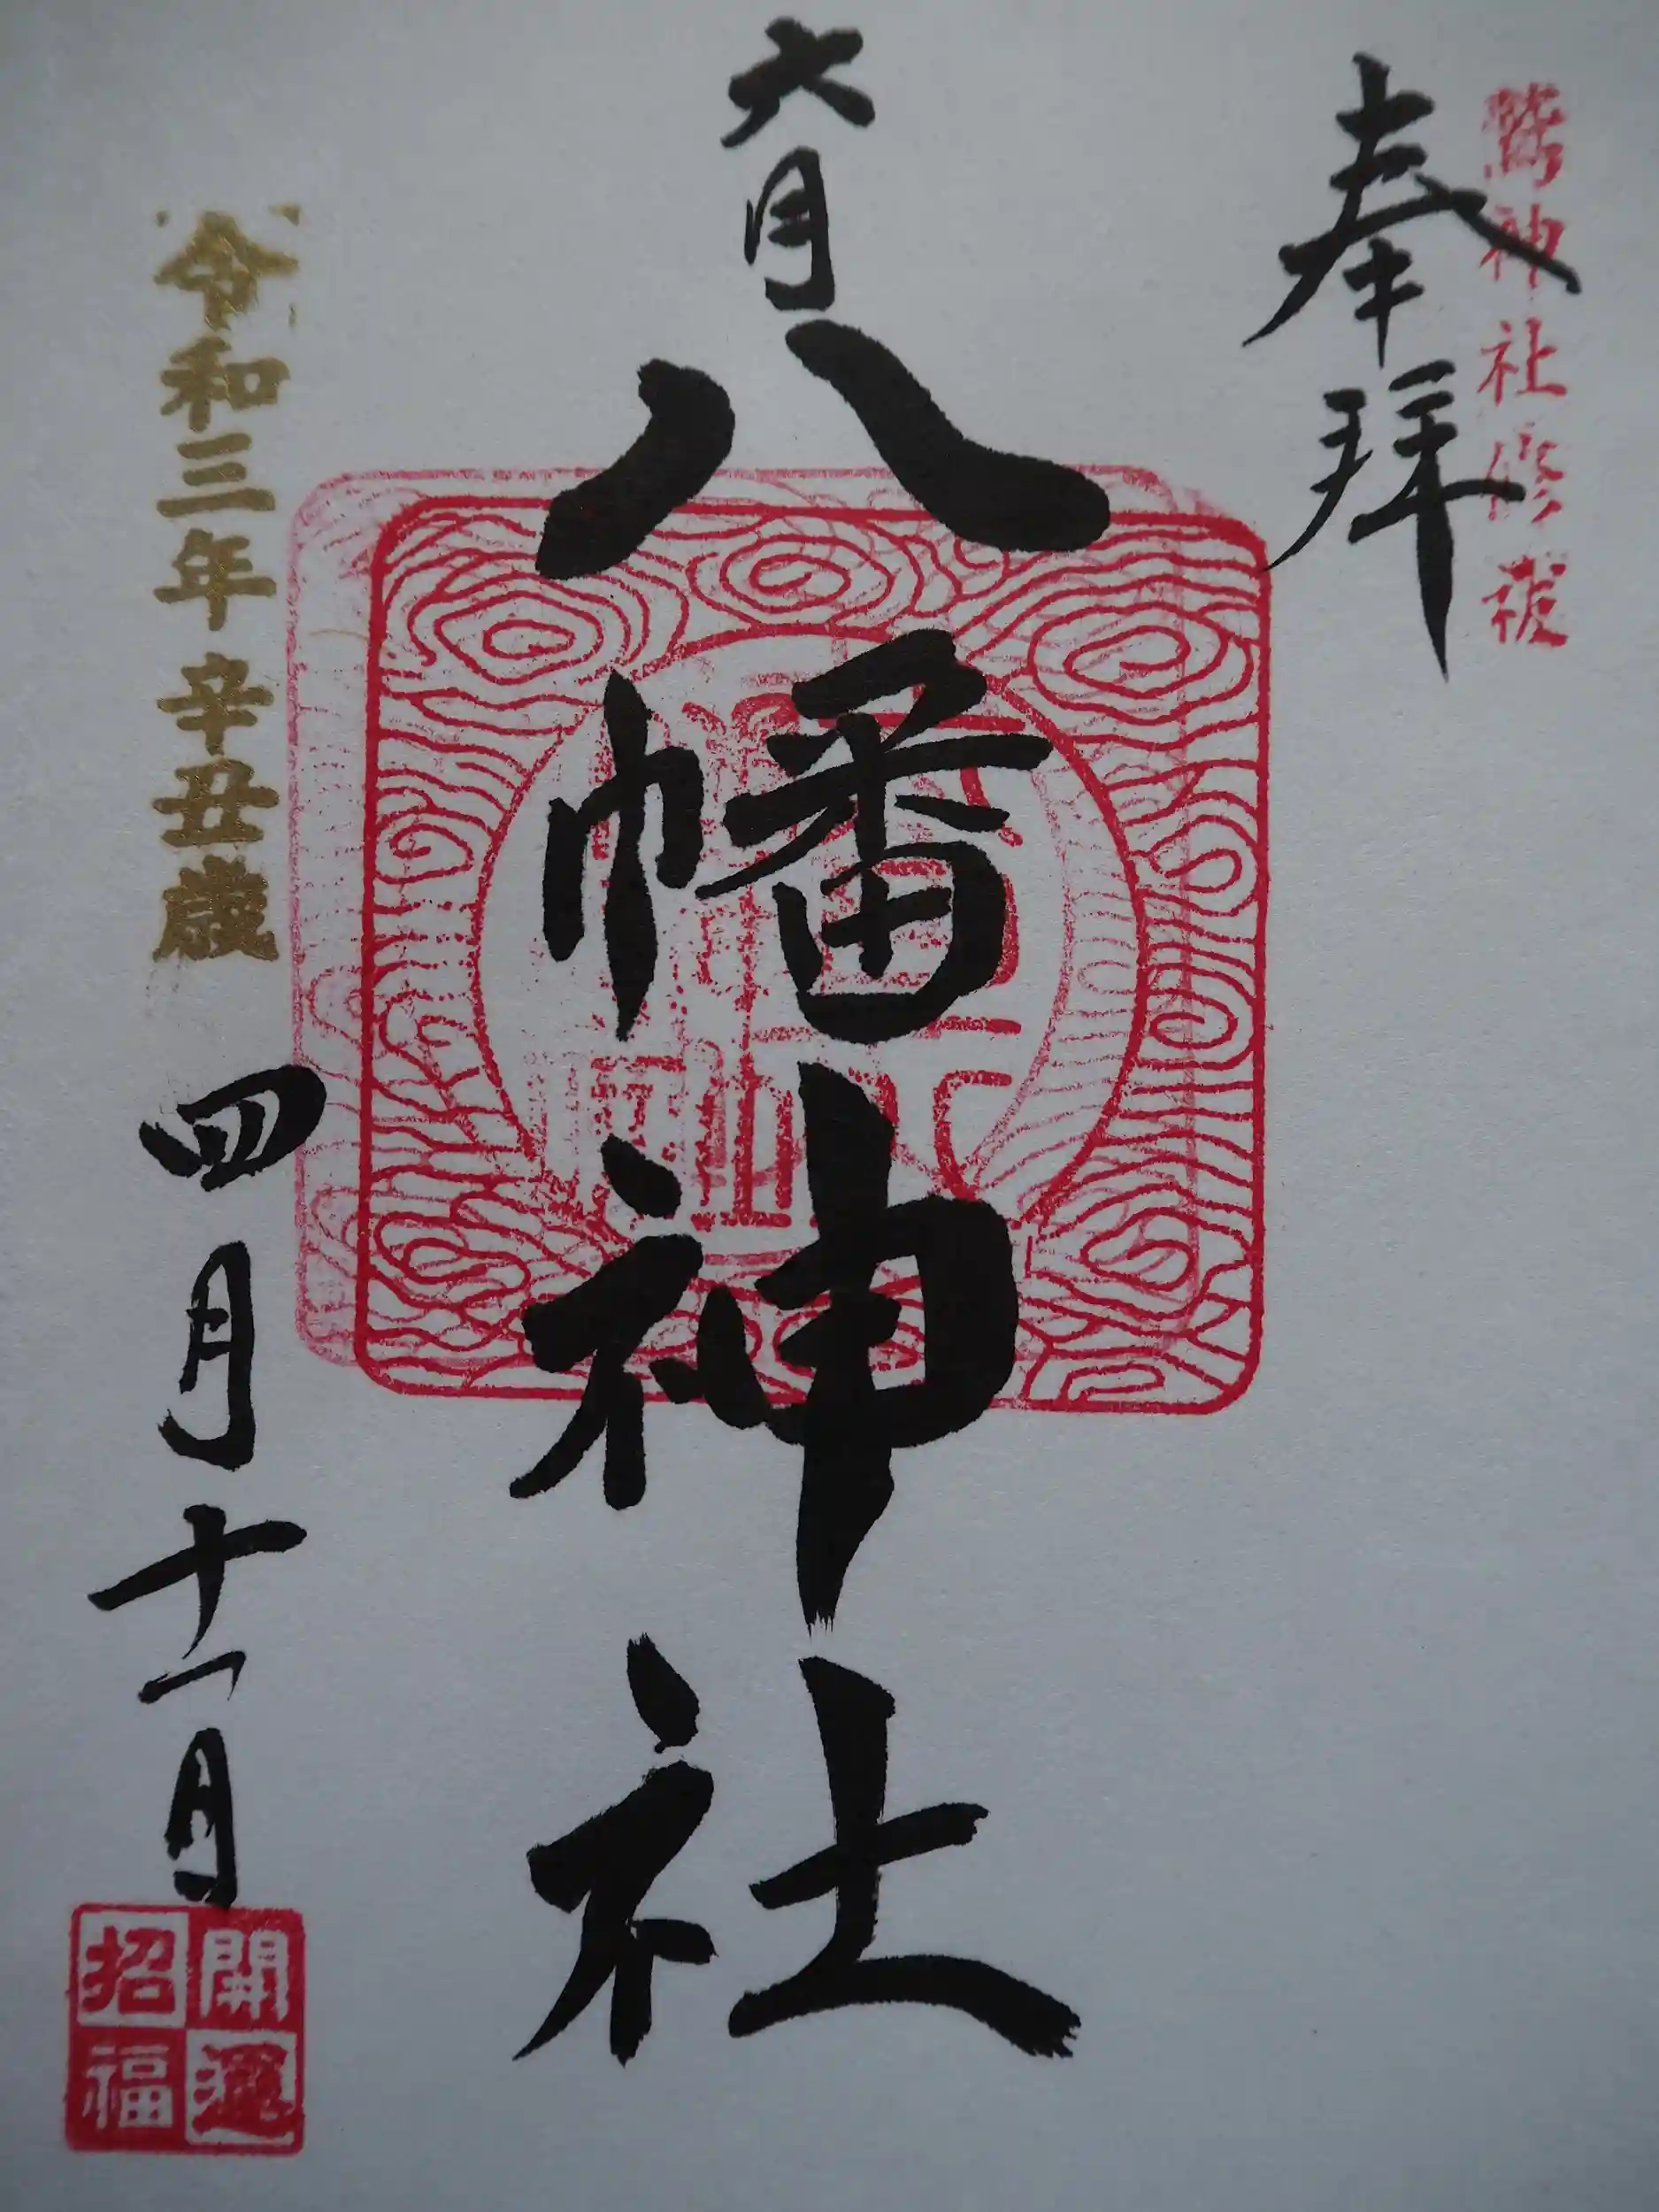 鷲神社修複
奉拝
六月八幡神社
令和三年 辛丑歳 四月十一日
開運
招福